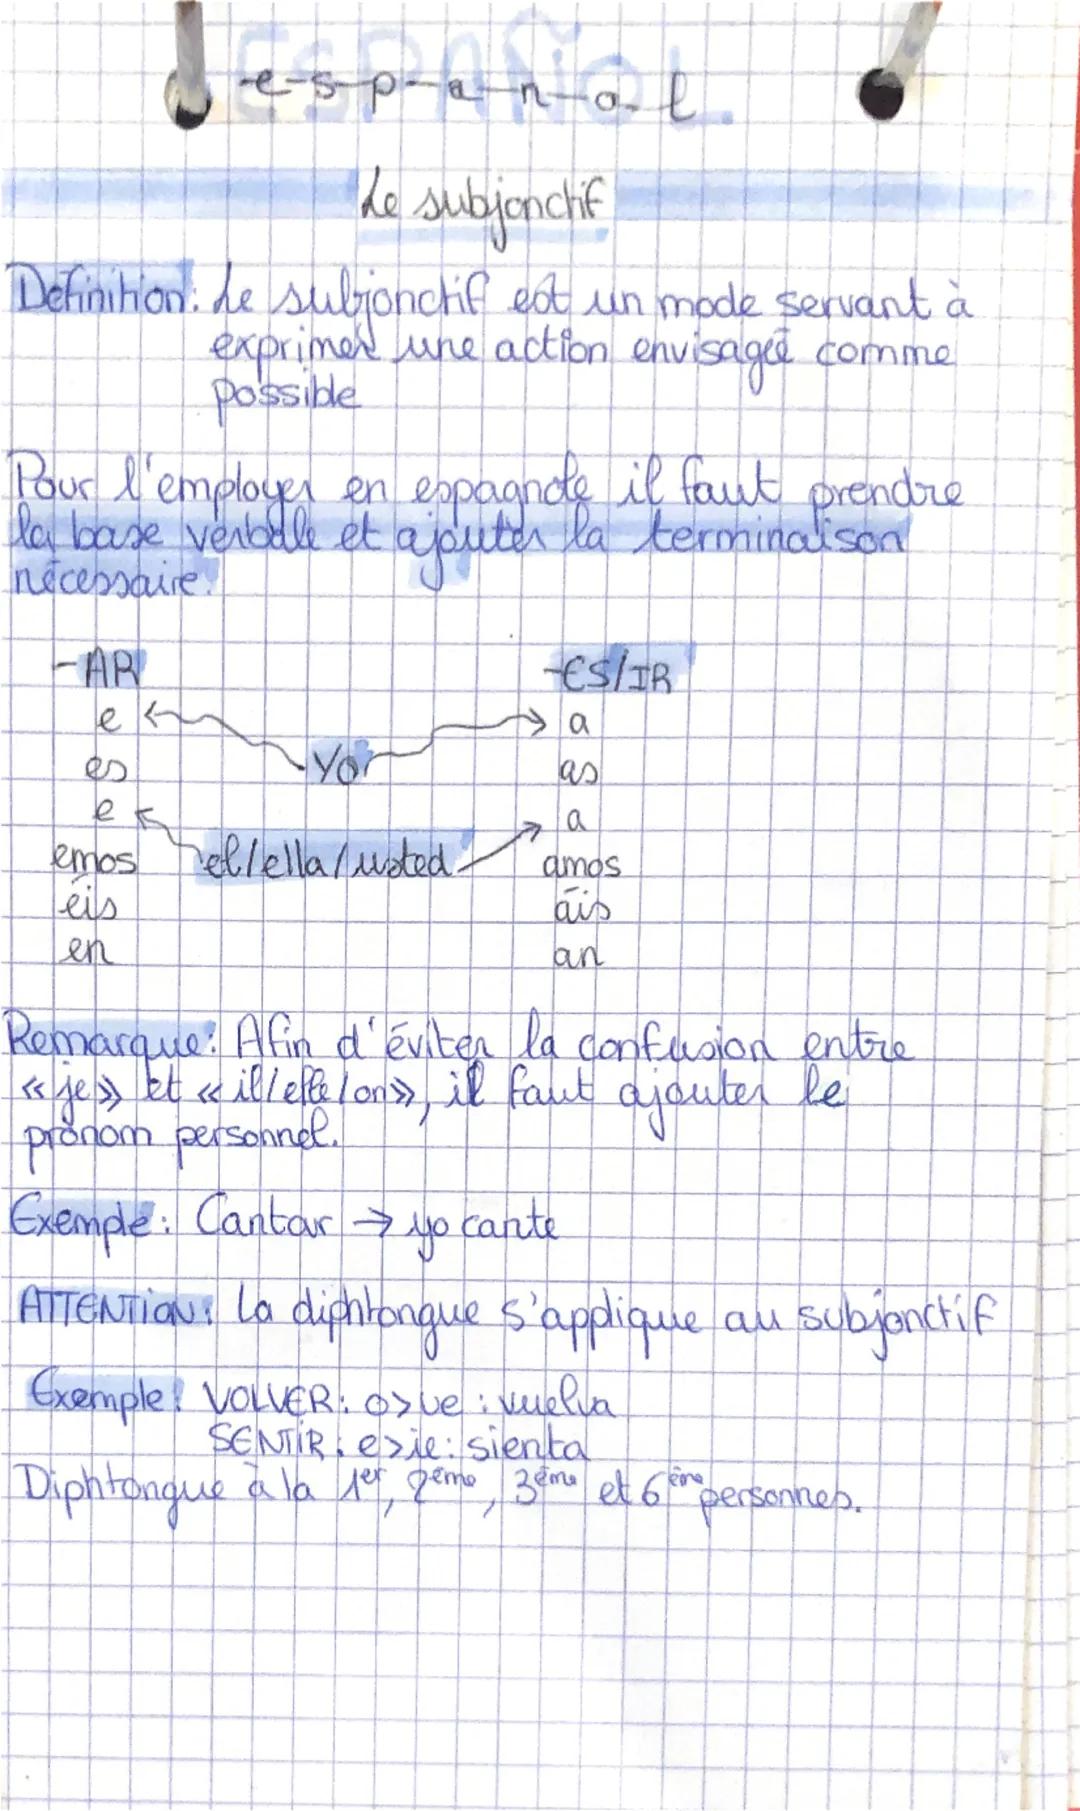 ESPAÑOL
e-s-p-a-n-o-l
Le subjonctif
Définition: Le subjonctif est un mode servant à
exprimer une action envisagée comme
possible
Pour l'employer en espagnole il faut prendre
la base verbale et ajouter la terminaison
nécessaire.
-AR -ES/IR
e a
Yo
es as
e a
emos el/ella/usted amos
éis áis
en an
Remarque: Afin d'éviter la confusion entre
«je» et «il/elle/on», il faut ajouter le
pronom personnel.
Exemple: Cantar → yo cante
ATTENTION: La diphtongue s'applique au subjonctif
Exemple: VOLVER: o>ue: vuelva
SENTIR: e>ie: sienta
Diphtongue à la 1er, 2ème, 3ème et 6ème personnes.